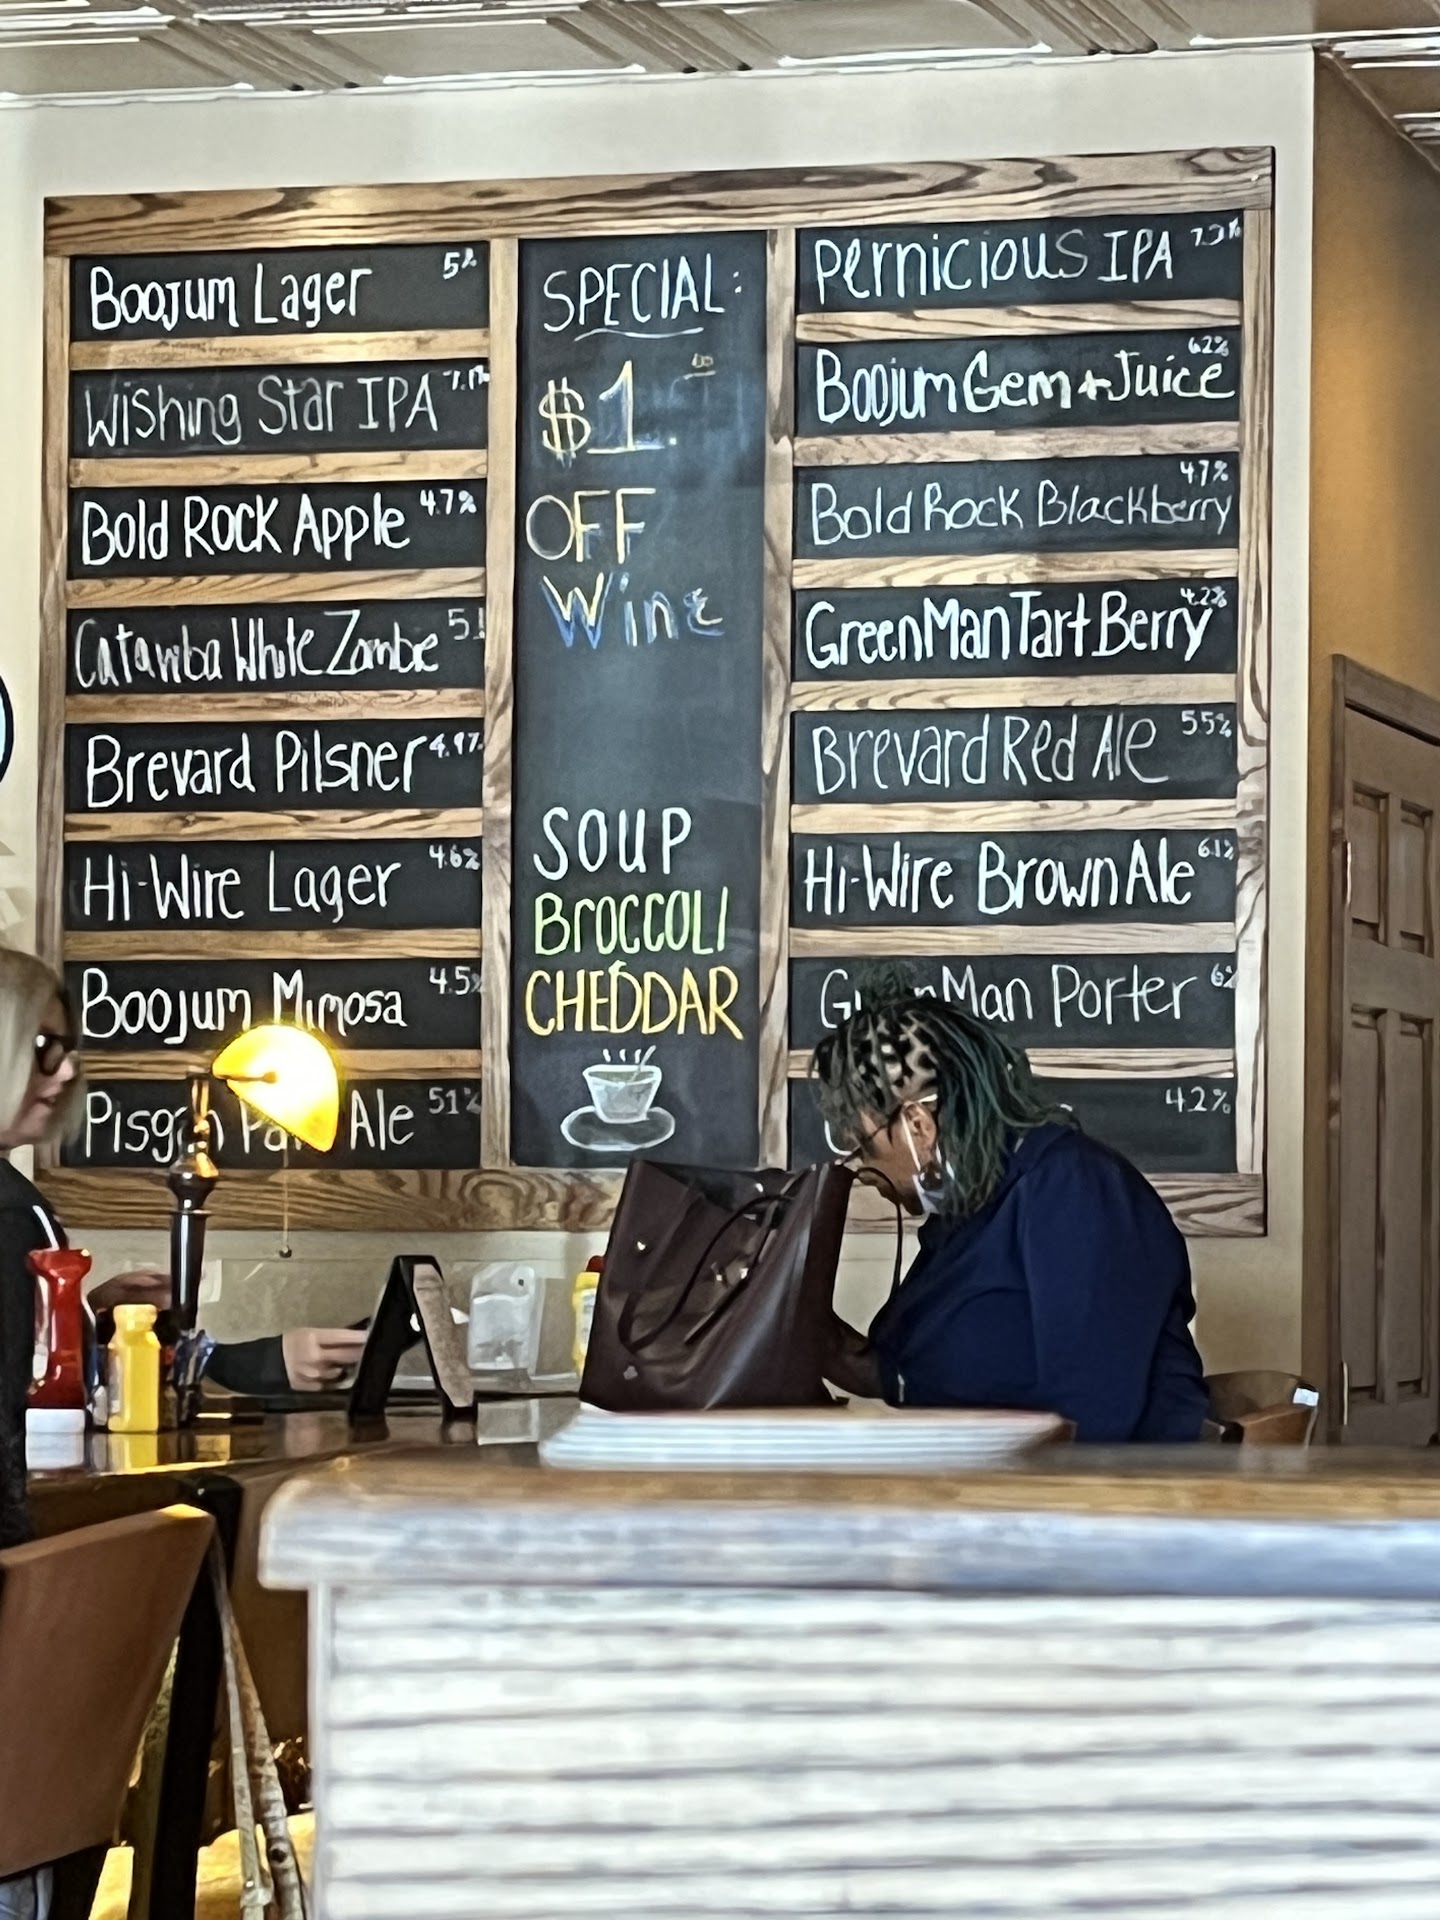 Boojum Lager 5%
Wishing Star IPA
Bold Rock Apple 4.7%
Catawba White Zombie
Brevard Pilsner
Hi-Wire Lager 4.6%
Boojum Mimosa 4.5%
Ale 51%
SPECIAL:
$1.00
OFF
Wine
SOUP
BROCCOLI
CHEDDAR
Pernicious IPA
Boojum Gem + Juice 62%
Bold Rock Blackberry 4.7%
Green Man Tart Berry 4.2%
Brevard Red Ale 5.5%
Hi-Wire Brown Ale 6.1%
Man Porter 6%
42%